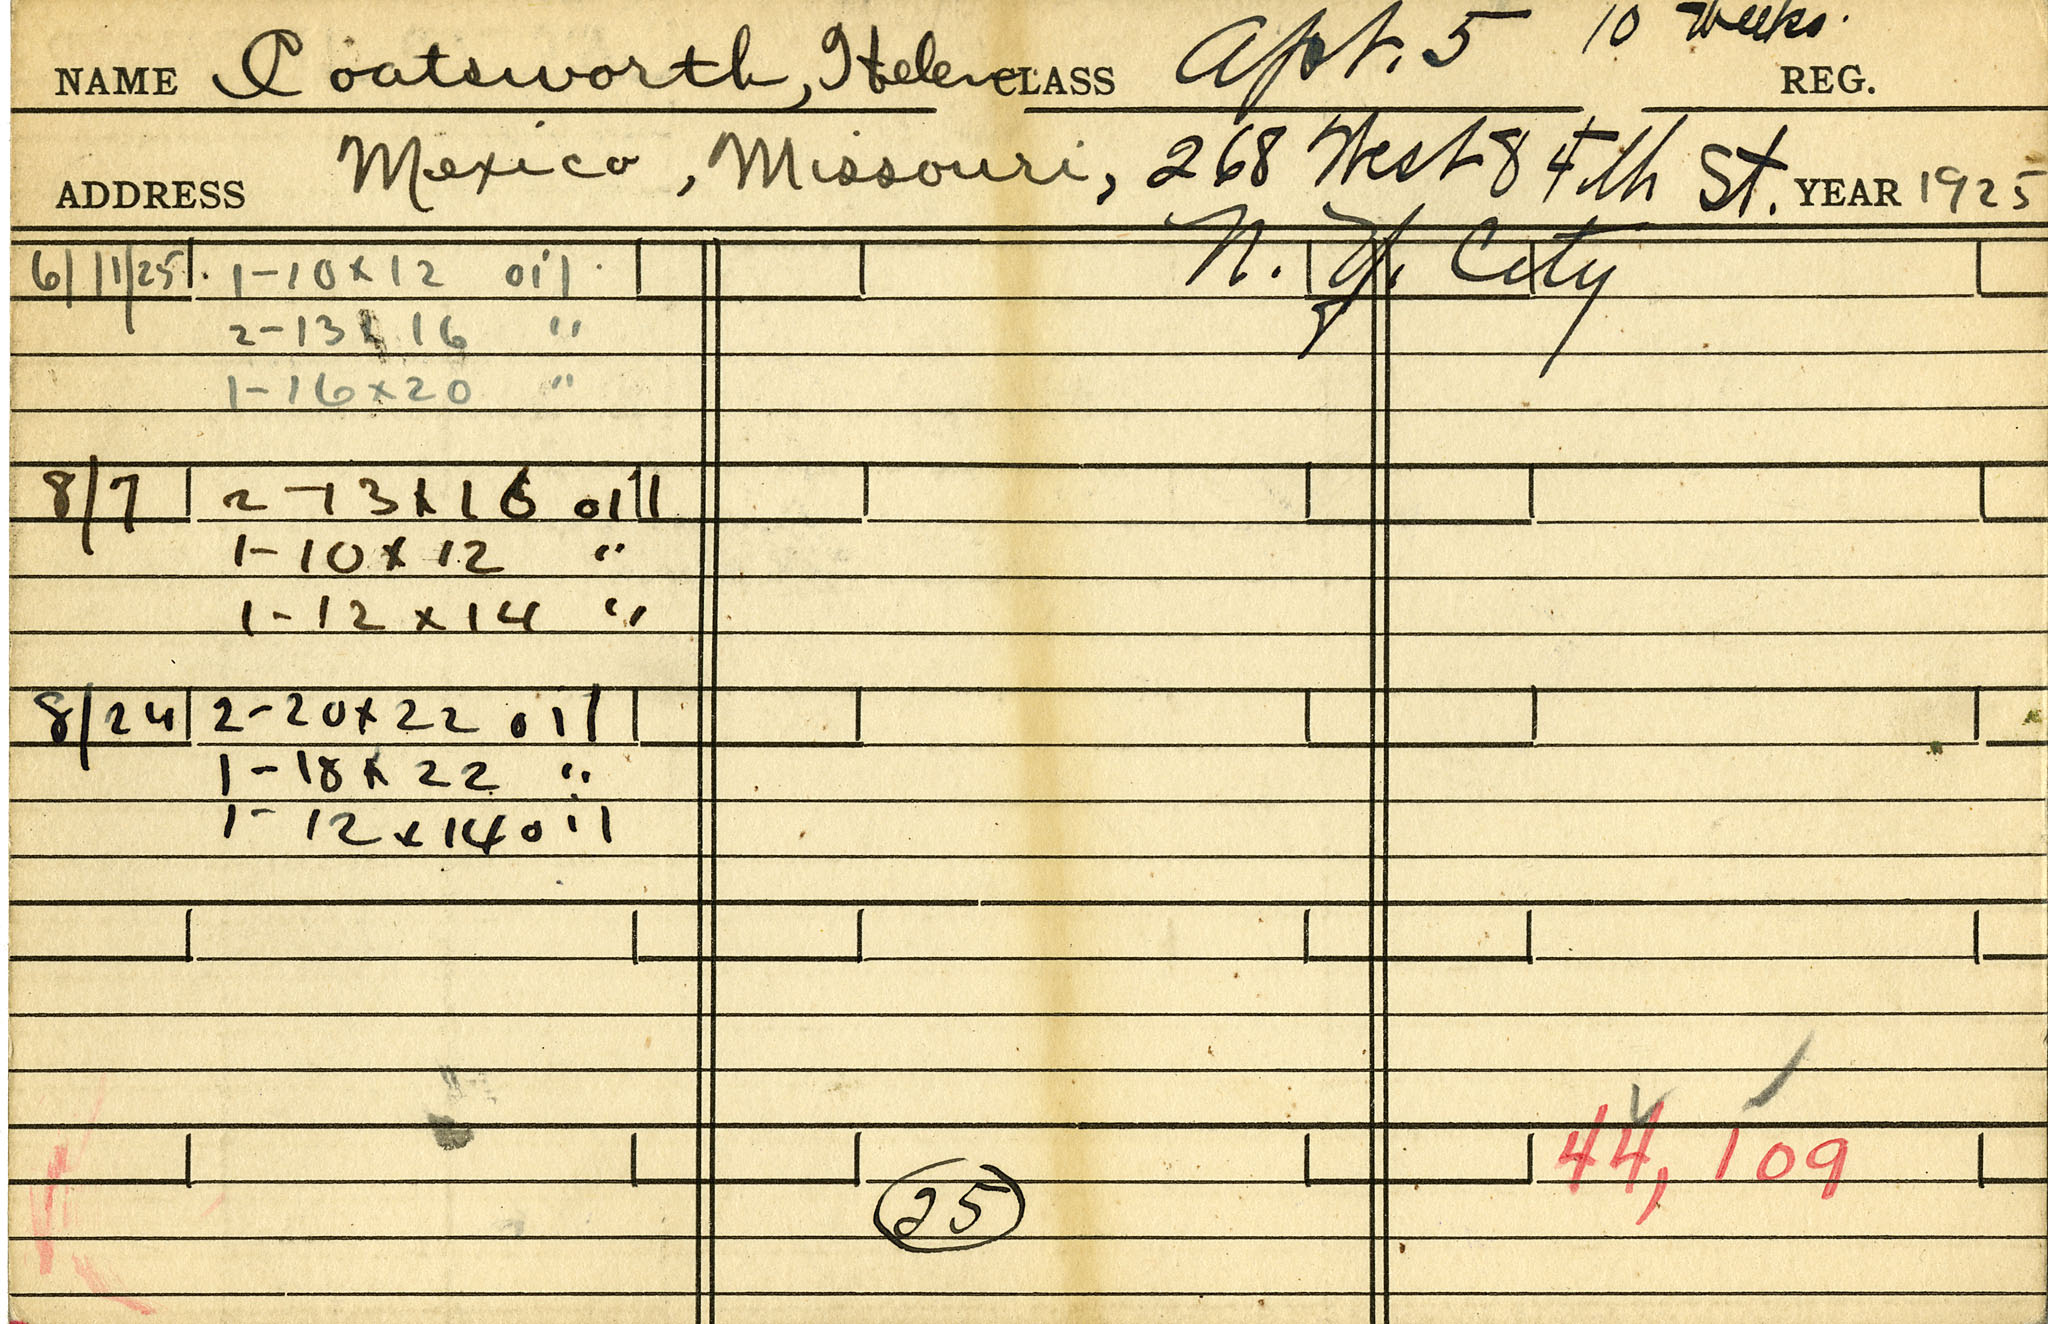 NAME Coatsworth, Helen CLASS Apt. 5 10 Weeks. REG.
ADDRESS Mexico, Missouri, 268 West 84th St. YEAR 1925
N. Y. City
6/11/25 1-10x12 oil
2-13x16 "
1-16x20 "
8/7 2-13x16 oil
1-10x12 "
1-12x14 "
8/24 2-20x22 oil
1-18x22 "
1-12x14 oil
44,109
25